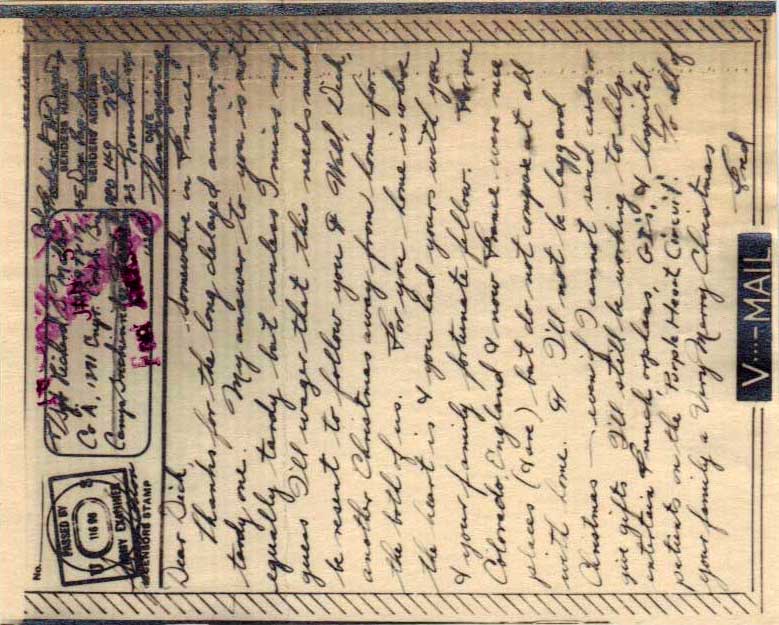 No.
PASSED BY
116 00
ARMY EXAMINER
CENSORS STAMP
Richard
Co A, 1291 Engr. Comb. Bn
Camp
Free
SENDERS NAME
SENDERS ADDRESS
APO 169
23 November
DATE
Thanksgiving
Somewhere in France
Dear Dick,
Thanks for the long delayed answer, or
tardy one. My answer to you is not
equally tardy but unless I miss my
guess I'll wager that this needs must
be resent to follow you & Well, Dick,
another Christmas away from home for
the both of us. For you home is where
the heart is & you had yours with you
& your family fortunate fellow. For me
Colorado, England & now France were nice
places (& are) but do not compare at all
with home. & I'll not be laggard
Christmas – even if I cannot send cards or
give gifts I'll still be working to help
entertain French orphans, G.I.'s, & hospital
patients on the "Purple Heart Circuit." To all of
your family a Very Merry Christmas
Fred
V···—MAIL